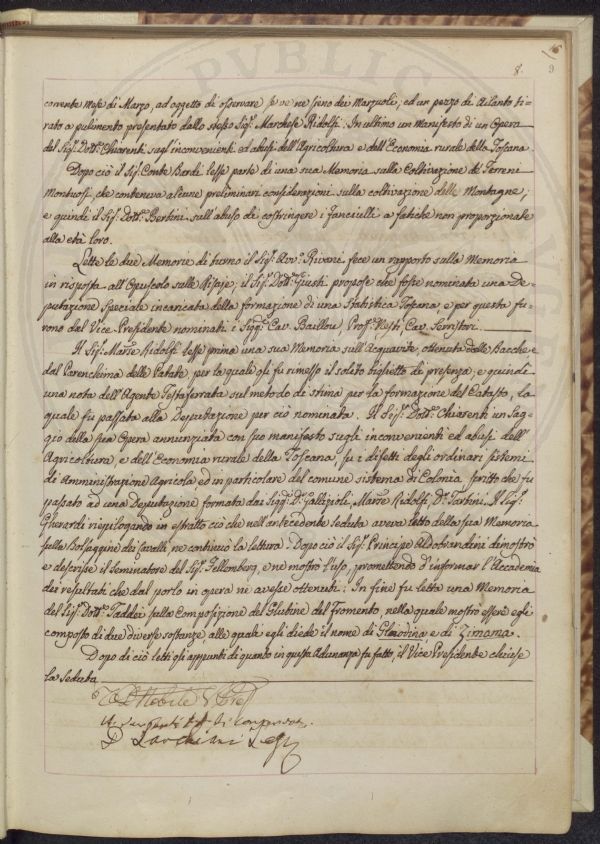 8.
9
corrente Mese di Marzo, ad oggetto di osservare se ve ne sieno dei Marzuoli; ed un pezzo di Ailanto ti=
rato a pulimento presentato dallo stesso Sig.r Marchese Ridolfi. In ultimo un Manifesto di un Opera
del Sig.r Dott.re Chiarenti sugl'inconvenienti ed abusi dell'Agricoltura e dell'Economia rurale della Toscana.
Dopo ciò il Sig. Conte Bardi lesse parte di una sua Memoria sulla Coltivazione de' Terreni
Montuosi, che conteneva alcune preliminari considerazioni sulla coltivazione delle Montagne;
e quindi il Sig. Dott.re Bertini sull'abuso di costringere i fanciulli a fatiche non proporzionate
alla età loro.
Lette le due Memorie di turno il Sig. Avv.o Rivani fece un rapporto sulla Memoria
in risposta all'Opuscolo sulle Risaje; il Sig. Dott. Giusti propose che fosse nominata una De=
putazione Speciale incaricata della formazione di una Statistica Toscana e per questa fu=
rono dal Vice Presidente nominati i Sigg.ri Cav. Baillou, Prof.re Nesti, Cav. Serristori.
Il Sig. March.e Ridolfi lesse prima una sua Memoria sull'Acquavite, ottenuta dalle Bacche e
dal Parenchima delle Patate, per la quale gli fu rimesso il solito biglietto di presenza; e quindi
una nota dell'Agente Testaferrata sul metodo di stima per la formazione del Catasto, la
quale fu passata alla Deputazione per ciò nominata. Il Sig. Dott.re Chiarenti un Sag=
gio della sua Opera annunziata con suo manifesto sugli inconvenienti ed abusi dell'
Agricoltura, e dell'Economia rurale della Toscana, su i difetti degli ordinari sistemi
di Amministrazione Agricola ed in particolare del comune sistema di Colonia, scritto che fu
passato ad una Deputazione formata dai Sigg.ri D.r Gallizioli, March.e Ridolfi, D.r Tartini. Il Sig.r
Gherardi riepilogando in estratto ciò che nell'antecedente seduta aveva letto della sua Memoria
sulla Bolsaggine dei Cavalli ne continuò la lettura. Dopo ciò il Sig. Principe Aldobrandini dimostrò
e descrisse il seminatore del Sig. Fellemberg, e ne mostrò l'uso, promettendo d'informar l'Accademia
dei resultati che dal porlo in opera ne avesse ottenuti: In fine fu letta una Memoria
del Sig. Dott. Taddei sulla Composizione del Glutine del Fromento, nella quale mostrò essere egli
composto di due diverse sostanze alle quali egli diede il nome di Gliadina e di Zimoma.
Dopo di ciò letti gli appunti di quanto in questa Adunanza fu fatto, il Vice Presidente chiuse
la seduta